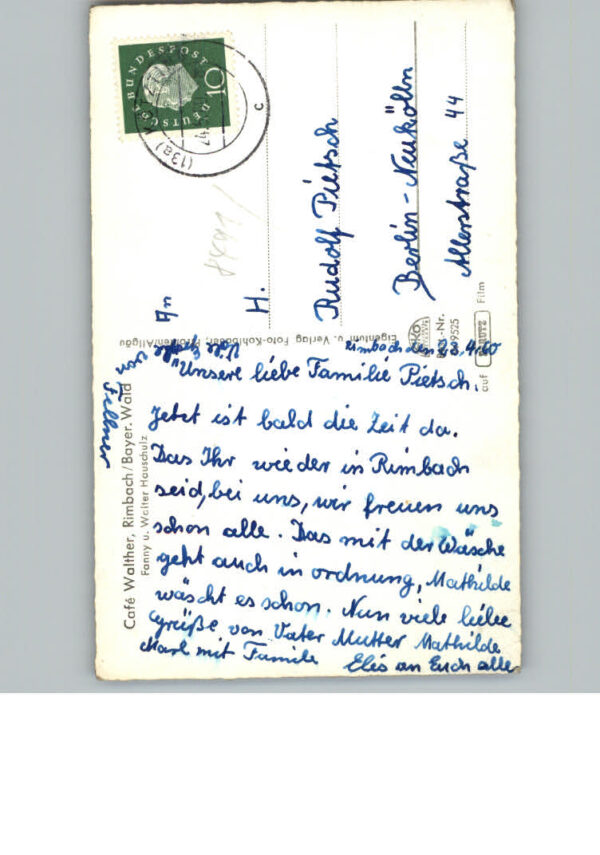 DEUTSCHE BUNDESPOST
10
(13a)
c
An
H.
Rudolf Pietsch
Berlin-Neukölln
Allerstraße 44
Eigentum u. Verlag Foto-Kohlbauer, Pfronten/Allgäu
9525
auf
Film
Café Walther, Rimbach/Bayer. Wald
Fanny u. Walter Hauschulz
Rimbach den 23.4.60
Unsere liebe Familie Pietsch.
Jetzt ist bald die Zeit da.
Das Ihr wieder in Rimbach
seid, bei uns, wir freuen uns
schon alle. Das mit der Wäsche
geht auch in ordnung, Mathilde
wäscht es schon. Nun viele liebe
Grüße von Vater Mutter Mathilde
Karl mit Familie Elis an Euch alle
von Fellner